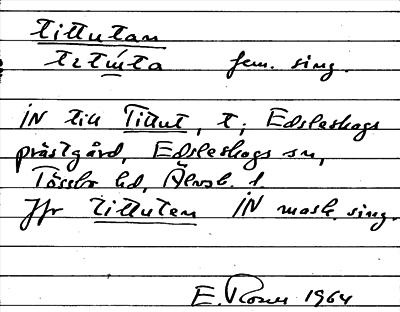 tittutan
tɪtúta fem. sing.
IN till Tittut, t; Edsleskogs
prästgård, Edsleskogs sn,
Tössbo hd, Älvsb. l.
Jfr tittuten IN mask. sing.
E. Rosen 1964